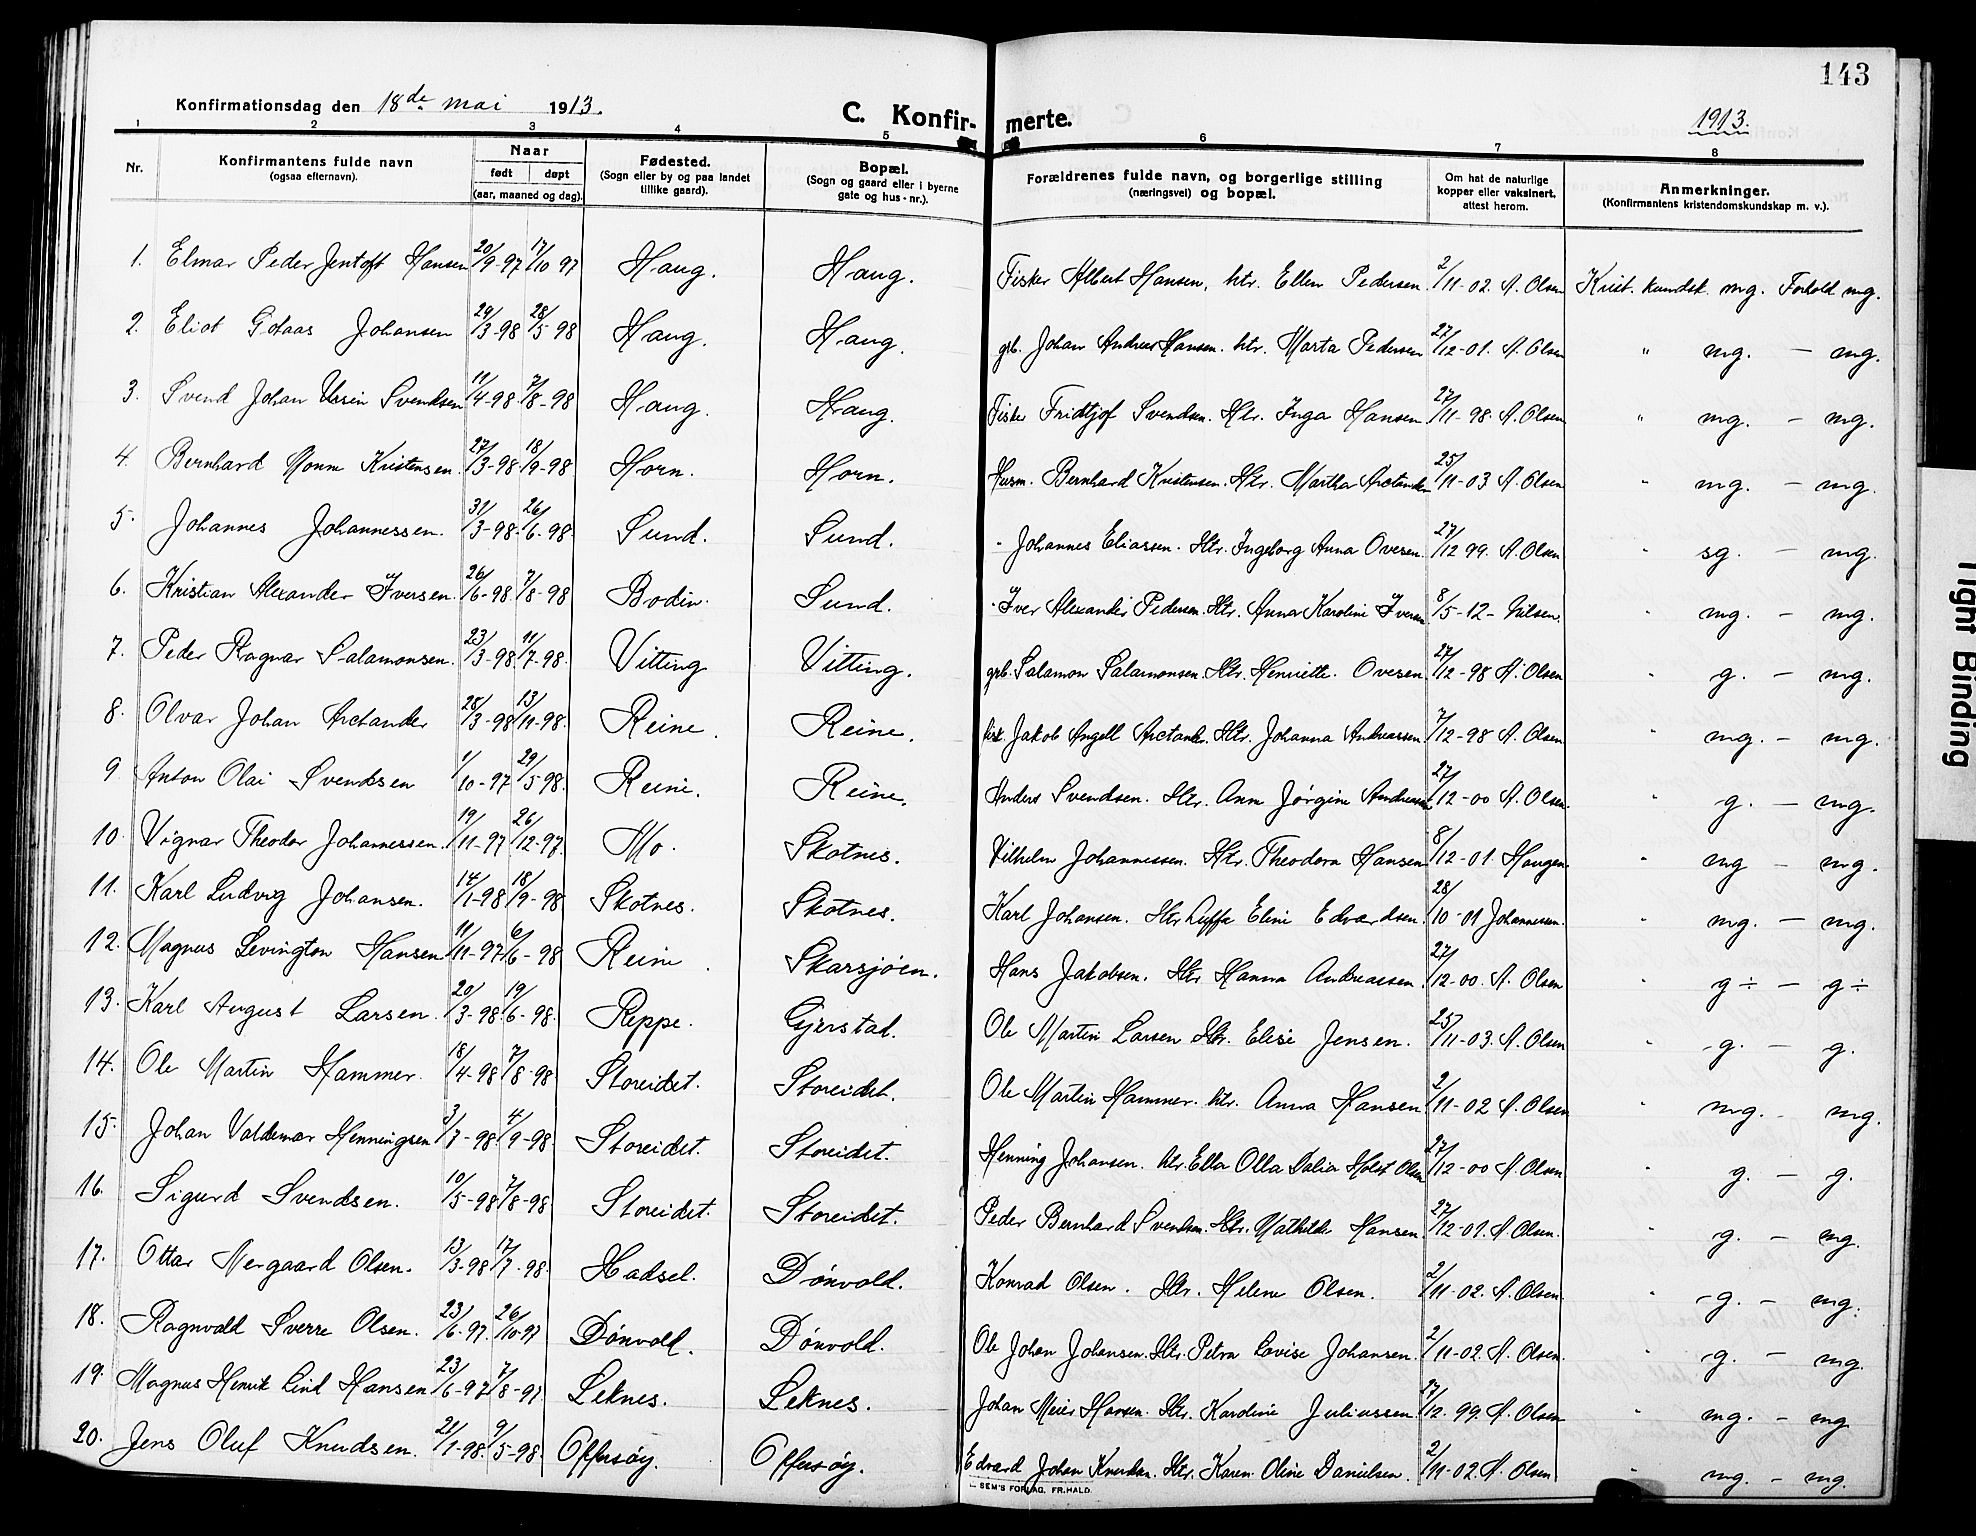 143
Konfirmationsdag den 18de mai 1913.
C. Konfirmerte.
1913.
1 2 3 4 5 6 7 8
Nr.
Konfirmantens fulde navn
(ogsaa efternavn).
Naar
født døpt
(aar, maaned og dag).
Fødested.
(Sogn eller by og paa landet
tillike gaard).
Bopæl.
(Sogn og gaard eller i byerne
gate og hus-nr.).
Forældrenes fulde navn, og borgerlige stilling
(næringsvei) og bopæl.
Om hat de naturlige
kopper eller vaksinert.
attest herom.
Anmerkninger.
(Konfirmantens kristendomskundskap m. v.).
1. Elmar Peder Jentoft Hansen 20/9-97 17/10 97 Haug. Haug. Fisker Albert Hansen, htr. Ellen Pedersen 2/11-02. A. Olsen Krist. kundsk. mg. Forhold mg.
2. Eliot Johansen 29/3-98 28/5 98 Haug. Haug. grb. Johan Andreas Hansen. htr. Marta Pedersen 27/12-01. A. Olsen " mg. — mg.
3. Svend Johan Ursin Svendsen 11/4-98. 7/8-98 Haug. Haug. Fisker Fridtjof Svendsen. Htr. Inga Hansen 27/11-98. A. Olsen " mg. — mg.
4. Bernhard Kristensen. 27/3-98. 18/9-98 Horn. Horn. Husm. Bernhard Kristensen. Htr. Martha Arctander 25/11-03 A. Olsen " mg. — mg.
5. Johannes Johannessen. 31/3-98. 26/6-98. Sund. Sund. " Johannes Eliassen. Htr. Ingeborg Anna Ovesen. 27/12 99. A. Olsen " sg. — mg.
6. Kristian Alexander Iversen. 26/6-98. 7/8-98 Bodin. Sund. " Iver Alexander Pedersen. Htr. Anna Karoline Iversen 8/5-12- Nilsen. " mg. — mg.
7. Peder Ragnar Salamonsen. 23/3-98. 11/7-98. Vitting Vitting. grb. Salamon Salamonsen. Htr. Henriette Ovesen. 27/12-98 A. Olsen " g. — mg.
8. Olvar Johan Arctander 28/3-98 13/11-98. Reine. Reine. fisk. Jakob Angell Arctander. Htr. Johanna Andreassen 7/12-98 A. Olsen. " mg. — mg.
9 Anton Olai Svendsen 1/10-97 29/5 98. Reine. Reine. Anders Svendsen. Htr. Ann Jørgine Andreassen 27/12-00 A. Olsen. " g. — mg.
10. Vignar Theodor Johannessen. 19/11-97 26/12-97. Mo. Skotnes. Vilhelm Johannessen. Htr. Theodora Hansen 8/12-01. Haugen. " mg — mg.
11. Karl Ludvig Johansen. 14/1-98 18/9-98 Skotnes. Skotnes. Karl Johansen. Htr. Eline Edvardsen. 28/10-01 Johannessen. mg. — mg.
12. Magnus Levington Hansen 11/11-97 6/6-98 Reine. Skarsjøen. Hans Jakobsen. Htr Hanna Andreassen 27/12-00. A. Olsen " g÷ — g÷
13. Karl August Larsen. 20/3-98. 19/6-98. Reppe. Gjerstad. Ole Martin Larsen Htr. Elise Jensen. 25/11-03. A. Olsen " g. — g.
14. Ole Martin Hammer. 18/4-98 7/8-98 Storeidet. Storeidet. Ole Martin Hammer. htr. Anna Hansen 2/11-02 A. Olsen " mg. mg.
15. Johan Valdemar Henningsen 3/7-98. 4/9-98. Storeidet. Storeidet. Henning Johansen. htr. Ella Olla Dalia Holst Olsen 27/12-00 A. Olsen " g. — g.
16. Sigurd Svendsen. 10/5-98. 7/8-98 Storeidet. Storeidet. Peder Bernhard Svendsen. Htr. Mathilde Hansen. 27/12-01. A. Olsen. " g. — mg.
17. Ottar Nergaard Olsen. 13/3-98 17/7-98. Hadsel. Dønvold. Konrad Olsen. Htr. Helene Olsen. 2/11-02. A. Olsen. " g. — mg.
18. Ragnvald Sverre Olsen. 23/6-97. 26/10-97 Dønvold. Dønvold. Ole Johan Johansen. Htr. Petra Lovise Johansen. 2/11-02. A. Olsen. g. — mg.
19. Magnus Henrik Lind Hansen 23/6-97 7/8-97 Leknes. Leknes. Johan Meier Hansen. Htr. Karoline Juliussen. 27/12. 99. A. Olsen " mg. — mg
20. Jens Oluf Knudsen. 21/1-98. 9/5-98. Offersøy. Offersøy. Edvard Johan Knudsen. Htr. Karen Oline Danielsen. 2/11-02. A. Olsen " mg. — mg.
SEM'S FORLAG. FR.HALD.
Tight Binding